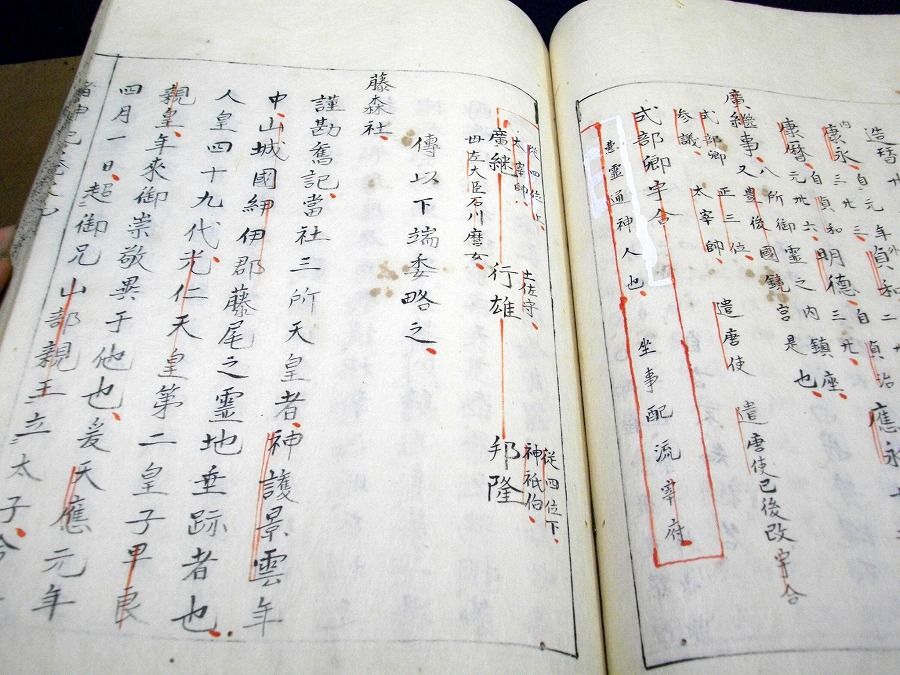 應永
造替
年貞和二
貞治
康永三
貞和
明德三
自
康暦元
自
六
廣継事八所御靈之内鎮座
又豊後國鏡宮是也
式部卿 正三位 遣唐使
参議 太宰帥 遣唐使已後改宇合
式部卿宇合
靈通神人也 坐事配流宰府
従四位上 従四位下
太宰帥 土佐守 神祇伯
廣継 行雄 邦隆
母左大臣石川麿女
傳以下端委略之
藤森社
謹勘舊記當社三所天皇者神護景雲年
中山城國紉伊郡藤尾之靈地垂跡者也
人皇四十九代光仁天皇第二皇子早良
親皇年來御崇敬異于他也爰天應元年
四月一日超御兄山部親王立太子